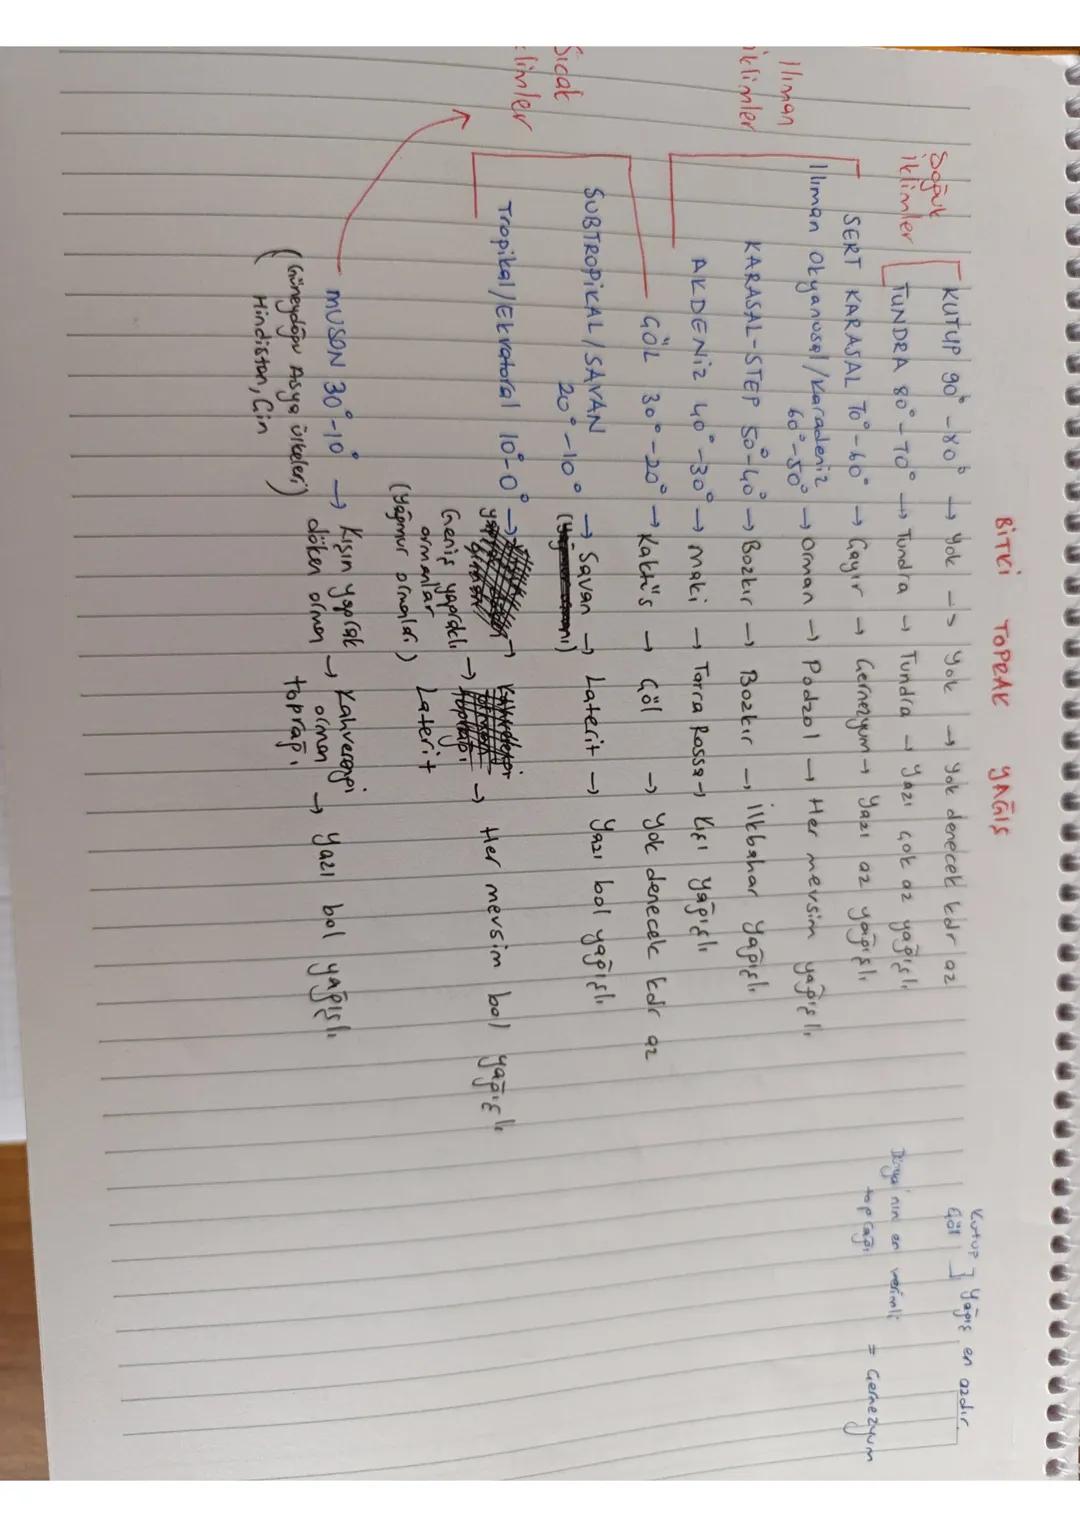 BİTKİ TOPRAK YAĞIŞ
Soğuk iklimler
KUTUP 90° - 80° → yok → yok → yok denecek kdr az
TUNDRA 80° - 70° → Tundra → Tundra → yazı çok az yağışlı
Ilıman iklimler
SERT KARASAL 70° - 60° → Çayır → Çernezyum → yazı az yağışlı
Ilıman Okyanusal / Karadeniz
60° - 50° → orman → Podzol → Her mevsim yağışlı
KARASAL-STEP 50°-40° → Bozkır → Bozkır → ilkbahar yağışlı
AKDENİZ 40° - 30° → maki → Terra Rossa → kışı yağışlı
Sıcak
limler
ÇÖL 30° - 20° → Kaktüs → Çöl → yok denecek kdr az
SUBTROPİKAL / SAVAN
20° - 10° → Savan → Laterit → Yazı bol yağışlı
Tropikal / Ekvatoral 10° - 0° → Geniş yapraklı ormanlar (yağmur ormanları) → Laterit → Her mevsim bol yağışlı
MUSON 30° - 10° → Kışın yaprak döken orman → Kahverengi orman toprağı → yazı bol yağışlı
(Güneydoğu Asya ülkeleri)
Hindistan, Çin
Kutup
Çöl } Yağış en azdır.
Dünya'nın en verimli toprağı = Çernezyum